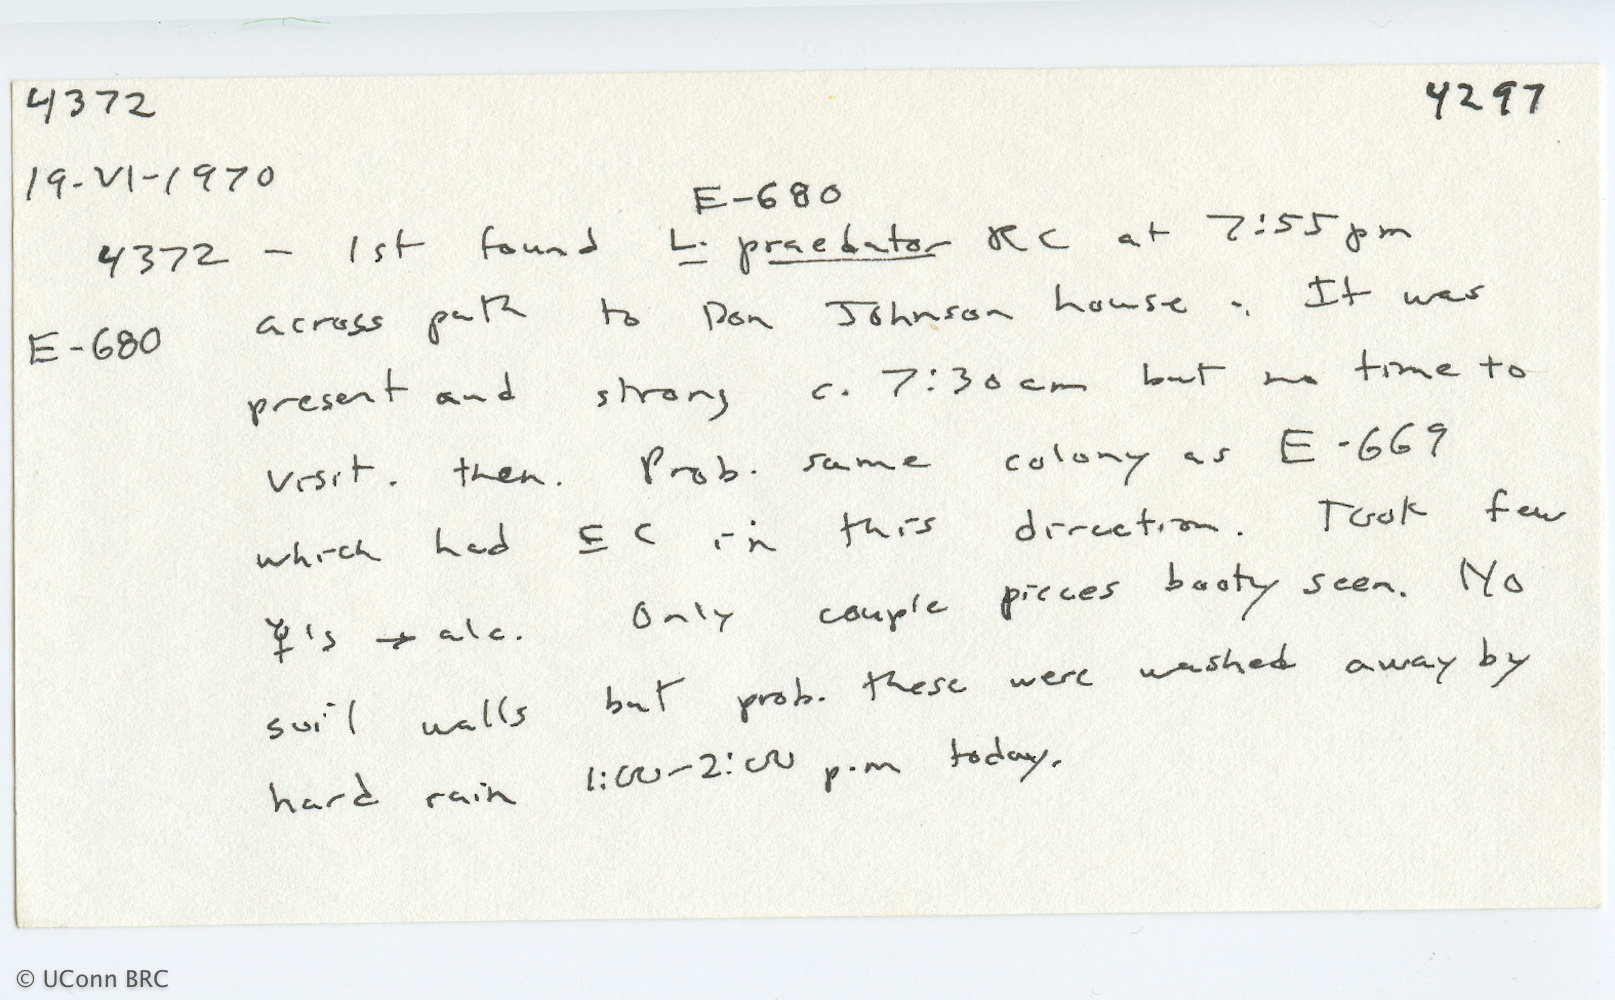 4372 4297
19-VI-1970
E-680
4372 - 1st found L. praedator RC at 7:55 pm
E-680 across path to Don Johnson house. It was
present and strong c. 7:30 am but no time to
visit. then. Prob. same colony as E-669
which had EC in this direction. Took few
☿'s → alc. Only couple pieces booty seen. No
soil walls but prob. these were washed away by
hard rain 1:00-2:00 p.m today.
© UConn BRC